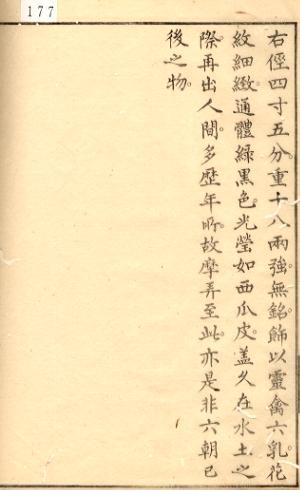 177
右徑四寸五分。重十八兩強。無銘。飾以靈禽六乳。花
紋細緻。通體綠黑色。光瑩如西瓜皮。蓋久在水土之
際。再出人間。多歷年所。故摩弄至此。亦是非六朝已
後之物。